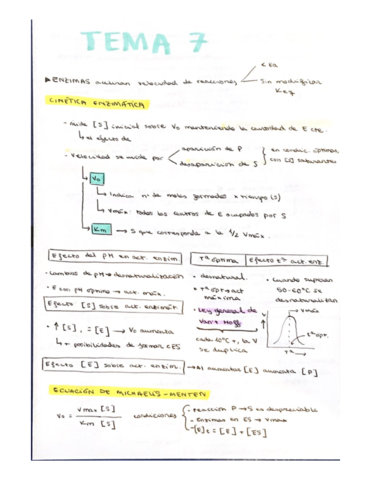 TEMA 7
< Ea
▸ENZIMAS aceleran velocidad de reacciones
Sin modificar
Keq
CINÉTICA ENZIMÁTICA
· Mide [S] inicial sobre Vo manteniendo la cantidad de E cte.
↳ efecto de
· Velocidad se mide por
aparición de P
desaparición de S
en condic. óptimas
con [S] saturantes
↳ Vo
↳ Indica nº de moles formados x tiempo (s)
↳ Vmáx: todos los centros de E ocupados por S
↳ Km → S que corresponde a la 1/2 Vmáx.
Efecto del pH en act. enzim.
· Cambios de pH → desnaturalización
· E con pH óptimo → act. máx.
Efecto [S] sobre act. enzimát.
· ↑ [S], = [E] → Vo aumenta
↳ + posibilidades de formar cES
Tª óptima
Efecto tª act. enz.
· desnatural.
· Tª ópt → act
máxima
· Ley general de
Van't Hoff
cada 10ºC +, la V
se duplica
· Cuando superan
50-60ºC se
desnaturalizan
→ Vmáx
tª opt.
Tª
Efecto [E] sobre act. enzim.
→ Al aumentar [E] aumenta [P]
ECUACIÓN DE MICHAELIS-MENTEN
Vo = Vmax [S]
Km [S]
condiciones
· reacción P → S es despreciable
· Enzimas en ES → Vmax
· [E]t = [E] + [ES]